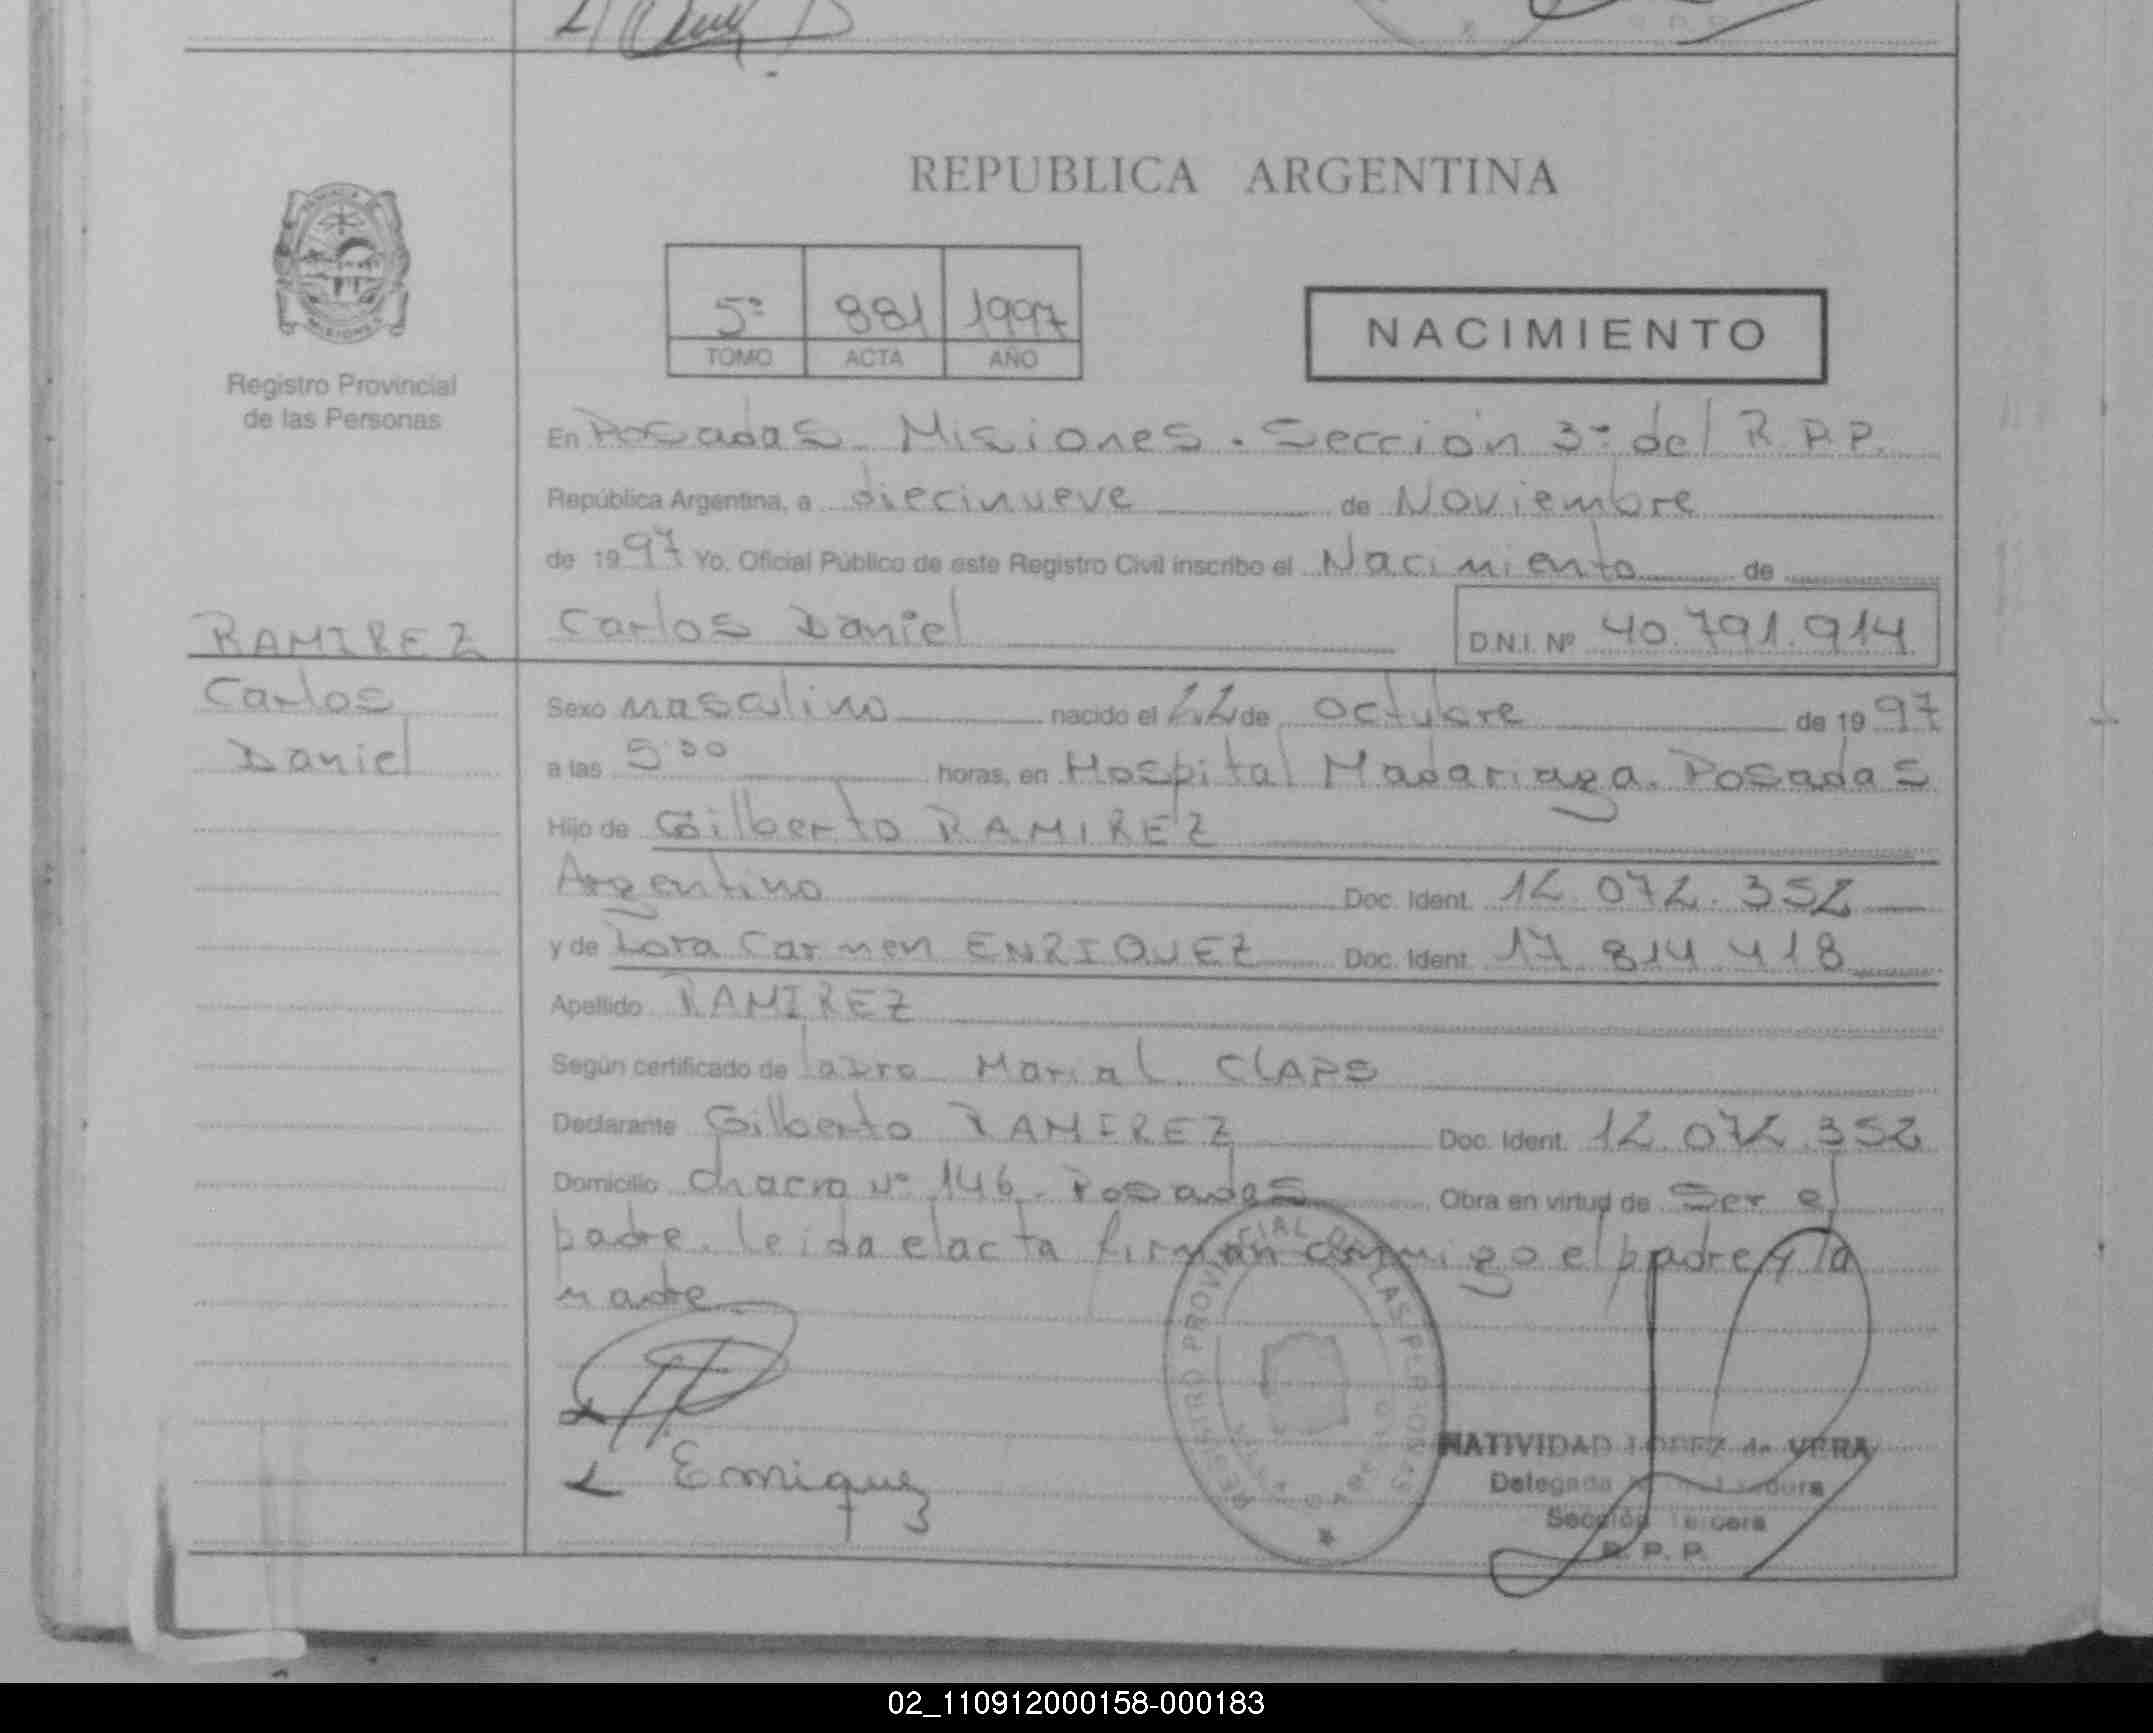 REPUBLICA ARGENTINA
5º 881 1997
TOMO ACTA AÑO
NACIMIENTO
Registro Provincial
de las Personas
En Posadas Misiones. Sección 3º del R.P.P.
República Argentina, a diecinueve de Noviembre
de 1997 Yo, Oficial Público de este Registro Civil inscribo el Nacimiento de
Carlos Daniel D.N.I. Nº 40.791.914
RAMIREZ
Carlos
Daniel
Sexo masculino nacido el 22 de octubre de 1997
a las 5:00 horas, en Hospital Madariaga. Posadas
Hijo de Gilberto RAMIREZ
Argentino Doc. Ident. 12.072.352
y de Carmen ENRIQUEZ Doc. Ident. 17.814.418
Apellido RAMIREZ
Según certificado de CLAPS
Declarante Gilberto RAMIREZ Doc. Ident. 12.072.352
Domicilio chacra Nº 146. Posadas Obra en virtud de ser el
padre. Leida el acta firman conmigo el padre y la
madre
REGISTRO PROVINCIAL DE LAS PERSONAS
Enriquez
NATIVIDAD LOPEZ de VERA
Delegada
Sección Tercera
R. P. P.
02_110912000158-000183